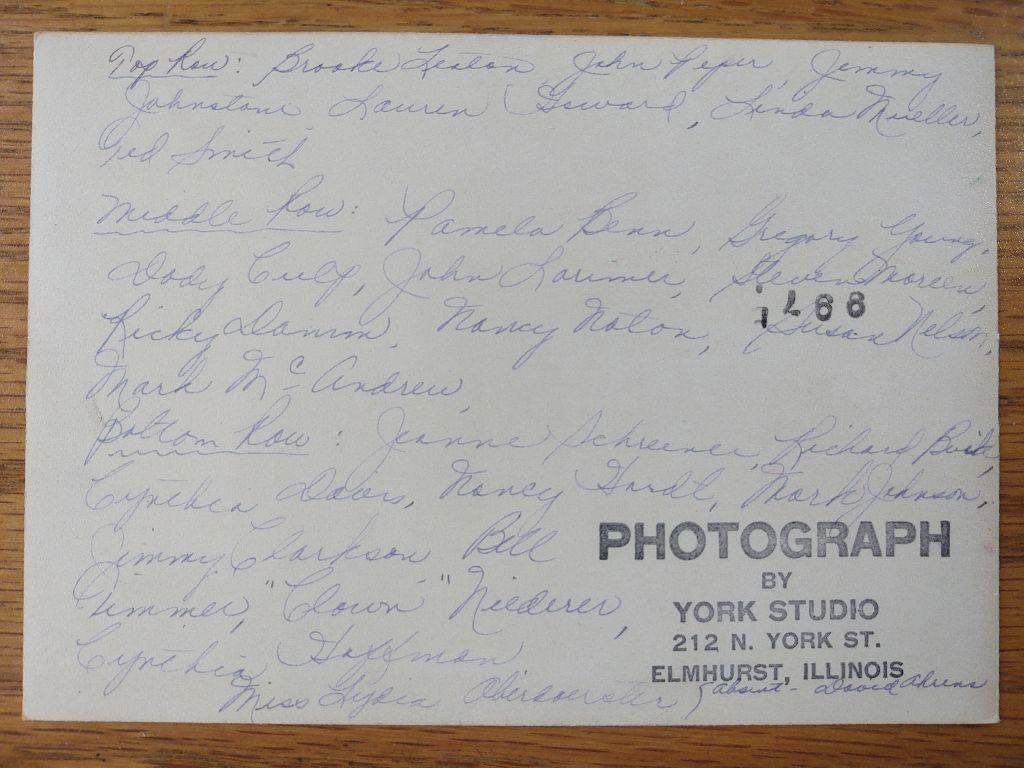 Top Row: Brooke Leaton, John Peper, Jemmy
Johnstone Lauren Goward, Linda Mueller,
Ted Smith
Middle Row: Pamela Benn, Gregory Young,
Dody Culp, John Lorimer, Steven Moreen,
Ricky Damm, Nancy Naton, Susan Nelson,
Mark Mc Andrew,
Bottom Row: Jeanne Schreener, Richard
Cynthia Davis, Nancy Hardt, Mark Johnson,
Jimmy Clarkson Bill
Timmer, "Clown" Niederer,
Cynthia Hoffman
Miss Lydia (absent - David Ahrens
1788
PHOTOGRAPH
BY
YORK STUDIO
212 N. YORK ST.
ELMHURST, ILLINOIS